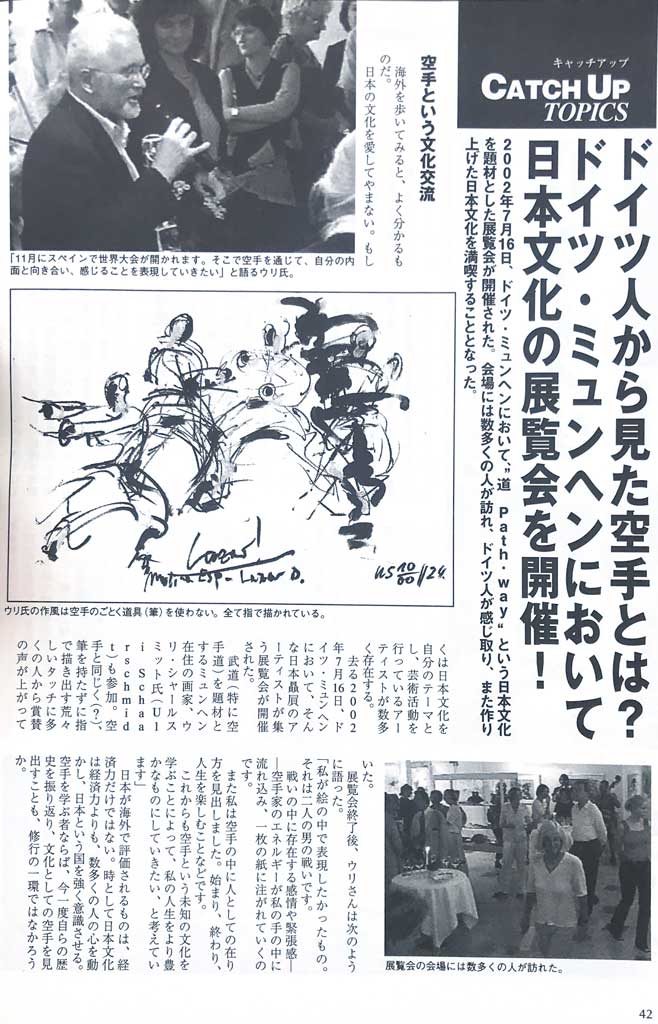 キャッチアップ
CATCH UP
TOPICS
ドイツ人から見た空手とは?
ドイツ・ミュンヘンにおいて
日本文化の展覧会を開催!
2002年7月16日、ドイツ・ミュンヘンにおいて、"道 Path・way"という日本文化
を題材とした展覧会が開催された。会場には数多くの人が訪れ、ドイツ人が感じ取り、また作り
上げた日本文化を満喫することとなった。
空手という文化交流
海外を歩いてみると、よく分かるも
のだ。
日本の文化を愛してやまない。もし
「11月にスペインで世界大会が開かれます。そこで空手を通じて、自分の内
面と向き合い、感じることを表現していきたい」と語るウリ氏。
US 10/00 / 24.
ウリ氏の作風は空手のごとく道具(筆)を使わない。全て指で描かれている。
くは日本文化を
自分のテーマと
し、芸術活動を
行っているアー
ティストが数多
く存在する。
去る2002
年7月16日、ド
イツ・ミュンヘン
において、そん
な日本贔屓のア
ーティストが集
う展覧会が開催
された。
武道(特に空
手道)を題材と
するミュンヘン
在住の画家、ウ
リ・シャールス
ミット氏(Ul
i Schaa
rschmid
t)も参加。空
手と同じく(?)、
筆を持たずに指
で描き出す荒々
しいタッチに多
くの人から賞賛
の声が上がって
いた。
展覧会終了後、ウリさんは次のよう
に語った。
「私が絵の中で表現したかったもの。
それは二人の男の戦いです。
戦いの中に存在する感情や緊張感―
―空手家のエネルギーが私の手の中に
流れ込み、一枚の紙に注がれていくの
です。
また私は空手の中に人としての在り
方を見出しました。始まり、終わり、
人生を楽しむことなどです。
これからも空手という未知の文化を
学ぶことによって、私の人生をより豊
かなものにしていきたい、と考えてい
ます」
日本が海外で評価されるものは、経
済力だけではない。時として日本文化
は経済力よりも、数多くの人の心を動
かし、日本という国を強く意識させる。
空手を学ぶ者ならば、今一度自らの歴
史を振り返り、文化としての空手を見
出すことも、修行の一環ではなかろう
か。
展覧会の会場には数多くの人が訪れた。
42